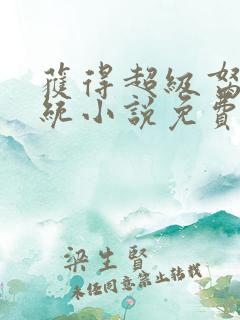 獲得超級
統小說免費
梁生賢
未經同意禁止轉載